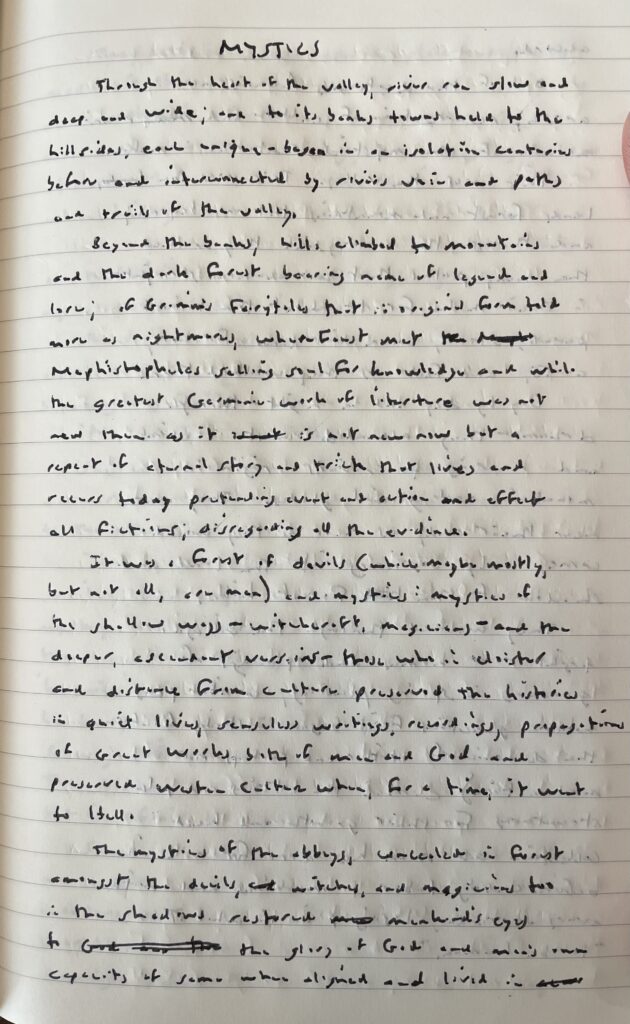 MYSTICS
Through the heart of the valley, river ran slow and
deep and wide; and to its banks towns held to the
hillsides, each unique - based in an isolation centuries
before and interconnected by rivers vein and paths
and trails of the valley.
Beyond the banks, hills climbed to mountains
and the dark forest bearing name of legend and
lore; of Grimm's Fairytales that in original form told
more as nightmares, where Faust met
Mephistopheles selling soul for knowledge and while
the greatest Germanic work of literture was not
new then as it is not new now but a
repeat of eternal story and trick that lives and
recurs today pretending event and action and effect
all fictions; disregarding all the evidence.
It was a forest of devils (while maybe mostly,
but not all, are men) and mystics: mystics of
the shallow ways - witchcraft, magicians - and the
deeper, ascendent versions - those who in cloister
and distance from culture preserved the histories
in quiet lives, writings, recordings, propagations
of Great Works both of men and God and
preserved Western Culture when, for a time, it went
to Hell.
The mystics of the abbeys, concealed in forest
amongst the devils, witches, and magicians too
in the shadows restored mankind's eyes
to the glory of God and man's own
capacity of same when aligned and lived in